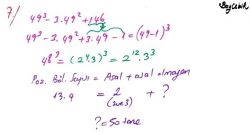 7/ 49³ - 3.49² + 146
49³ - 3.49² + 3.49 - 1 = (49-1)³
48³ = (2⁴.3)³ = 2¹².3³
Poz. Böl. Sayısı = Asal + asal olmayan
13.4 = 2 + ?
(2 ve 3)
? = 50 tane